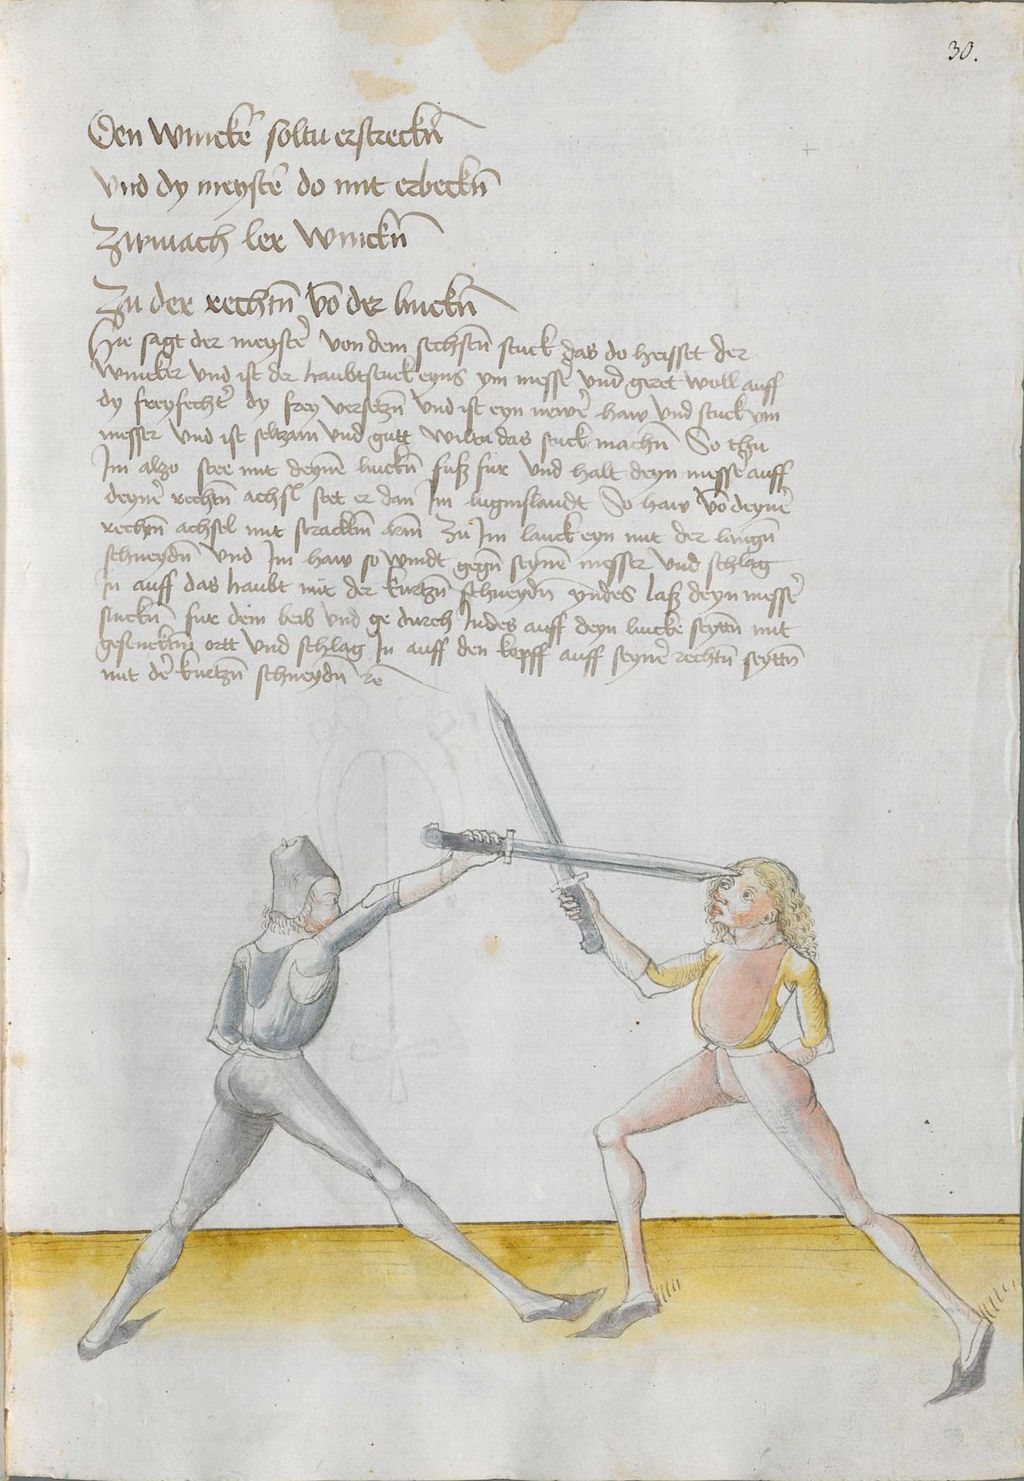 30.
Den wincker soltu erstreckn̄
vnd dy meyster do mit erbeckn̄
Zwinach ler winckn̄
Zu der rechtn̄ vō der linckn̄
Hie sagt der meyster von dem sechstn̄ stuck das do heisset der
wincker vnd ist der haubtstuck eyns ym messer vnd geret woll auff
dy freyfechter dy frey versetzn̄ vnd ist eyn newer haw vnd stuck ym
messer vnd ist seltzam vnd gutt wiltu das stuck machn̄ So thu
Im also stee mit deynē linckn̄ fuß für vnd halt deyn messer auff
deyner rechtn̄ achsl stet er dan̄ Im luginslandt So haw vō deyner
rechtn̄ achsel mit stracktm̄ arm̄ zu Im lauck eyn mit der langn̄
schneydn̄ vnd Im haw so windt gegn̄ seynē messer vnd schlag
In auff das haubt mit der kurtzn̄ schneydn̄ yndes laß deyn messer
sinckn̄ für dem leib vnd ge durch Indes auff deyn lincke seyttn̄ mit
gesencktm̄ ortt vnd schlag In auff den kopff auff seyner rechtn̄ seyttn̄
mit der kurtzn̄ schneydn̄ rc